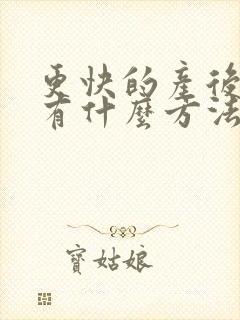 更快的產後
有什麼方法
寶姑娘